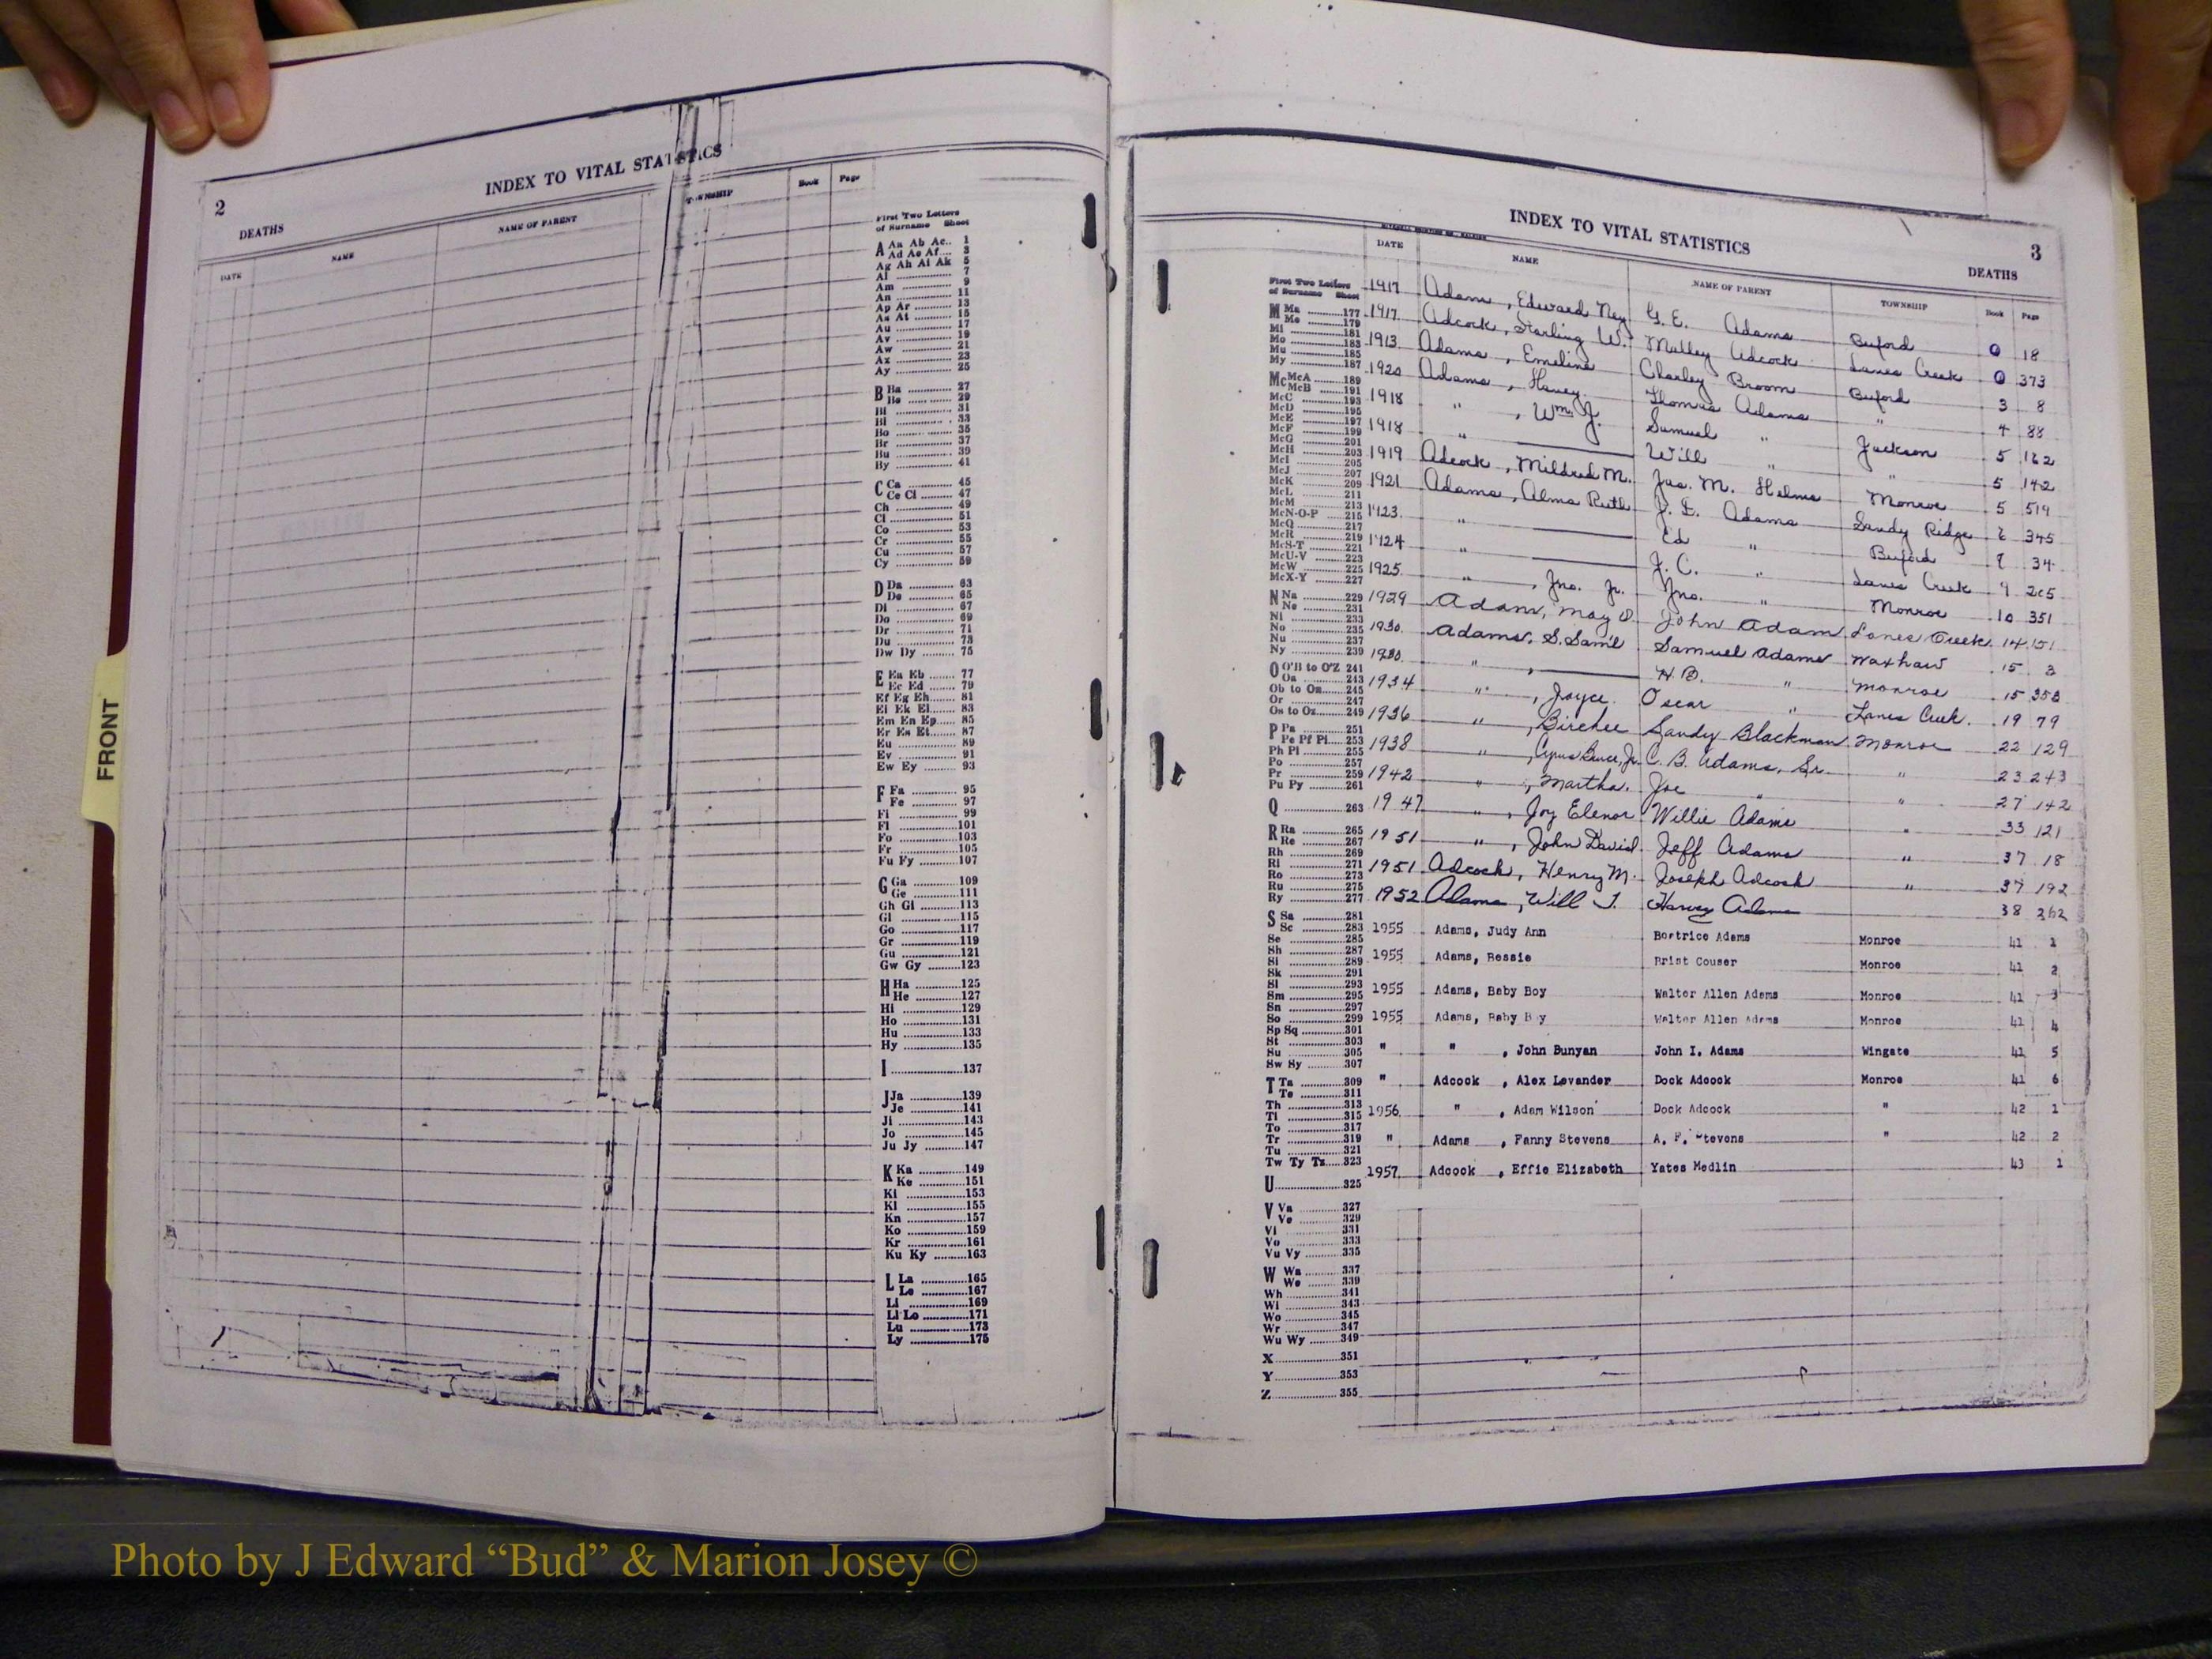 2
INDEX TO VITAL STATISTICS
DEATHS
DATE NAME NAME OF PARENT TOWNSHIP Book Page
First Two Letters
of Surname Sheet
A Aa Ab Ac.. 1
Ad Ae Af.... 3
Ag Ah Ai Ak 5
Al ............ 7
Am ............ 9
An ............ 11
Ap Ar ............ 13
As At ............ 15
Au ............ 17
Av ............ 19
Aw ............ 21
Ax ............ 23
Ay ............ 25
B Ba ............ 27
Be ............ 29
Bi ............ 31
Bl ............ 33
Bo ............ 35
Br ............ 37
Bu ............ 39
By ............ 41
C Ca ............ 45
Ce Ci ........ 47
Ch ............ 49
Cl ............ 51
Co ............ 53
Cr ............ 55
Cu ............ 57
Cy ............ 59
D Da ............ 63
De ............ 65
Di ............ 67
Do ............ 69
Dr ............ 71
Du ............ 73
Dw Dy ......... 75
E Ea Eb ....... 77
Ec Ed ....... 79
Ef Eg Eh...... 81
Ei Ek El...... 83
Em En Ep..... 85
Er Es Et....... 87
Eu ............ 89
Ev ............ 91
Ew Ey ........ 93
F Fa ............ 95
Fe ............ 97
Fi ............ 99
Fl ............101
Fo ............103
Fr ............105
Fu Fy ........107
G Ga ............109
Ge ............111
Gh Gi ........113
Gl ............115
Go ............117
Gr ............119
Gu ............121
Gw Gy ........123
H Ha ............125
He ............127
Hi ............129
Ho ............131
Hu ............133
Hy ............135
I ......................137
J Ja ............139
Je ............141
Ji ............143
Jo ............145
Ju Jy ........147
K Ka ............149
Ke ............151
Ki ............153
Kl ............155
Kn ............157
Ko ............159
Kr ............161
Ku Ky .........163
L La ............165
Le ............167
Li ............169
Ll Lo .........171
Lu ............173
Ly ............175
FRONT
3
INDEX TO VITAL STATISTICS
DEATHS
DATE NAME NAME OF PARENT TOWNSHIP Book Page
First Two Letters
of Surname Sheet
M Ma .........177
Me .........179
Mi ............181
Mo ............183
Mu ............185
My ............187
Mc McA .......189
McB .......191
McC ............193
McD ............195
McE ............197
McF ............199
McG ............201
McH ............203
McI ............205
McJ ............207
McK ............209
McL ............211
McM ............213
McN-O-P ......215
McQ ............217
McR ............219
McS-T .........221
McU-V .........223
McW ............225
McX-Y .........227
N Na ............229
Ne ............231
Ni ............233
No ............235
Nu ............237
Ny ............239
O O'B to O'Z 241
Oa ............243
Ob to On.......245
Or ............247
Os to Oz.......249
P Pa ............251
Pe Pf Pi....253
Ph Pl .........255
Po ............257
Pr ............259
Pu Py .........261
Q ......................263
R Ra ............265
Re ............267
Rh ............269
Ri ............271
Ro ............273
Ru ............275
Ry ............277
S Sa ............281
Sc ............283
Se ............285
Sh ............287
Si ............289
Sk ............291
Sl ............293
Sm ............295
Sn ............297
So ............299
Sp Sq .........301
St ............303
Su ............305
Sw Sy .........307
T Ta ............309
Te ............311
Th ............313
Ti ............315
To ............317
Tr ............319
Tu ............321
Tw Ty Tz.....323
U......................325
V Va ............327
Ve ............329
Vi ............331
Vo ............333
Vu Vy .........335
W Wa ............337
We ............339
Wh ............341
Wi ............343
Wo ............345
Wr ............347
Wu Wy .........349
X......................351
Y......................353
Z......................355
1917 Adams, Edward Ney G. E. Adams Buford 0 18
1917 Adcock, Starling W. Malley Adcock Lanes Creek 0 373
1913 Adams, Emeline Charley Broom Buford 3 8
1920 Adams, Haney Thomas Adams " 4 88
1918 " , Wm. J. Samuel " Jackson 5 162
1918 " Will " " 5 142
1919 Adcock, Mildred M. Jas. M. Helms Monroe 5 519
1921 Adams, Alma Ruth J. L. Adams Sandy Ridge 345
1923 " Ed " Buford 34
1924 " J. C. " Lanes Creek 9 265
1925 " , Jno. Jr. Jno. " Monroe 10 351
1929 Adam, May O. John Adam Lanes Creek 14 151
1930 Adams, S. Sam'l Samuel Adams Waxhaw 15 3
1930 " , H. B. " Monroe 15 358
1934 " , Joyce Oscar " Lanes Creek 19 79
1936 " , Birchee Sandy Blackman Monroe 22 129
1938 " , Cyrus Bruce, Jr. C. B. Adams, Sr. " 23 243
1942 " , Martha. Joe " " 27 142
1947 " , Joy Elenor Willie Adams " 33 121
1951 " , John David Jeff Adams " 37 18
1951 Adcock, Henry M. Joseph Adcock " 37 192
1952 Adams, Will J. Harvey Adams 38 262
1955 Adams, Judy Ann Beatrice Adams Monroe 41 1
1955 Adams, Bessie Brist Couser Monroe 41 2
1955 Adams, Baby Boy Walter Allen Adams Monroe 41 3
1955 Adams, Baby Boy Walter Allen Adams Monroe 41 4
" " , John Bunyan John I. Adams Wingate 41 5
" Adcock , Alex Levander Dock Adcock Monroe 41 6
1956 " , Adam Wilson Dock Adcock " 42 1
" Adams , Fanny Stevens A. F. Stevens " 42 2
1957 Adcock , Effie Elizabeth Yates Medlin 43 1
Photo by J Edward “Bud” & Marion Josey ©